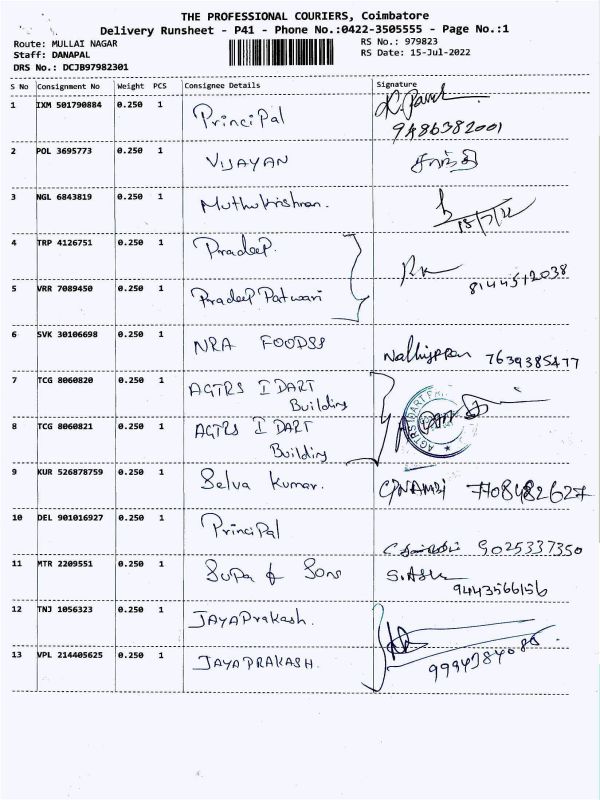 THE PROFESSIONAL COURIERS, Coimbatore
Delivery Runsheet - P41 - Phone No.:0422-3505555 - Page No.:1
Route: MULLAI NAGAR
Staff: DANAPAL
DRS No.: DCJB97982301
RS No.: 979823
RS Date: 15-Jul-2022
S No Consignment No Weight PCS Consignee Details Signature
1 IXM 501790884 0.250 1 Principal
9486382001
2 POL 3695773 0.250 1 VIJAYAN சாந்தி
3 NGL 6843819 0.250 1 Muthukrishnan. 15/7/22
4 TRP 4126751 0.250 1 Pradeep.
8144512038
5 VRR 7089450 0.250 1 Pradeep Patwari
6 SVK 30106698 0.250 1 NRA FOODSS
7639385477
7 TCG 8060820 0.250 1 AGTRS I DART
Building
8 TCG 8060821 0.250 1 AGTRS I DART
Building
9 KUR 526878759 0.250 1 Selva Kumar. 7708482627
10 DEL 901016927 0.250 1 Principal
9025337350
11 MTR 2209551 0.250 1 Supa & Sons
9443566156
12 TNJ 1056323 0.250 1 JAYAPrakash.
13 VPL 214405625 0.250 1 JAYAPRAKASH.